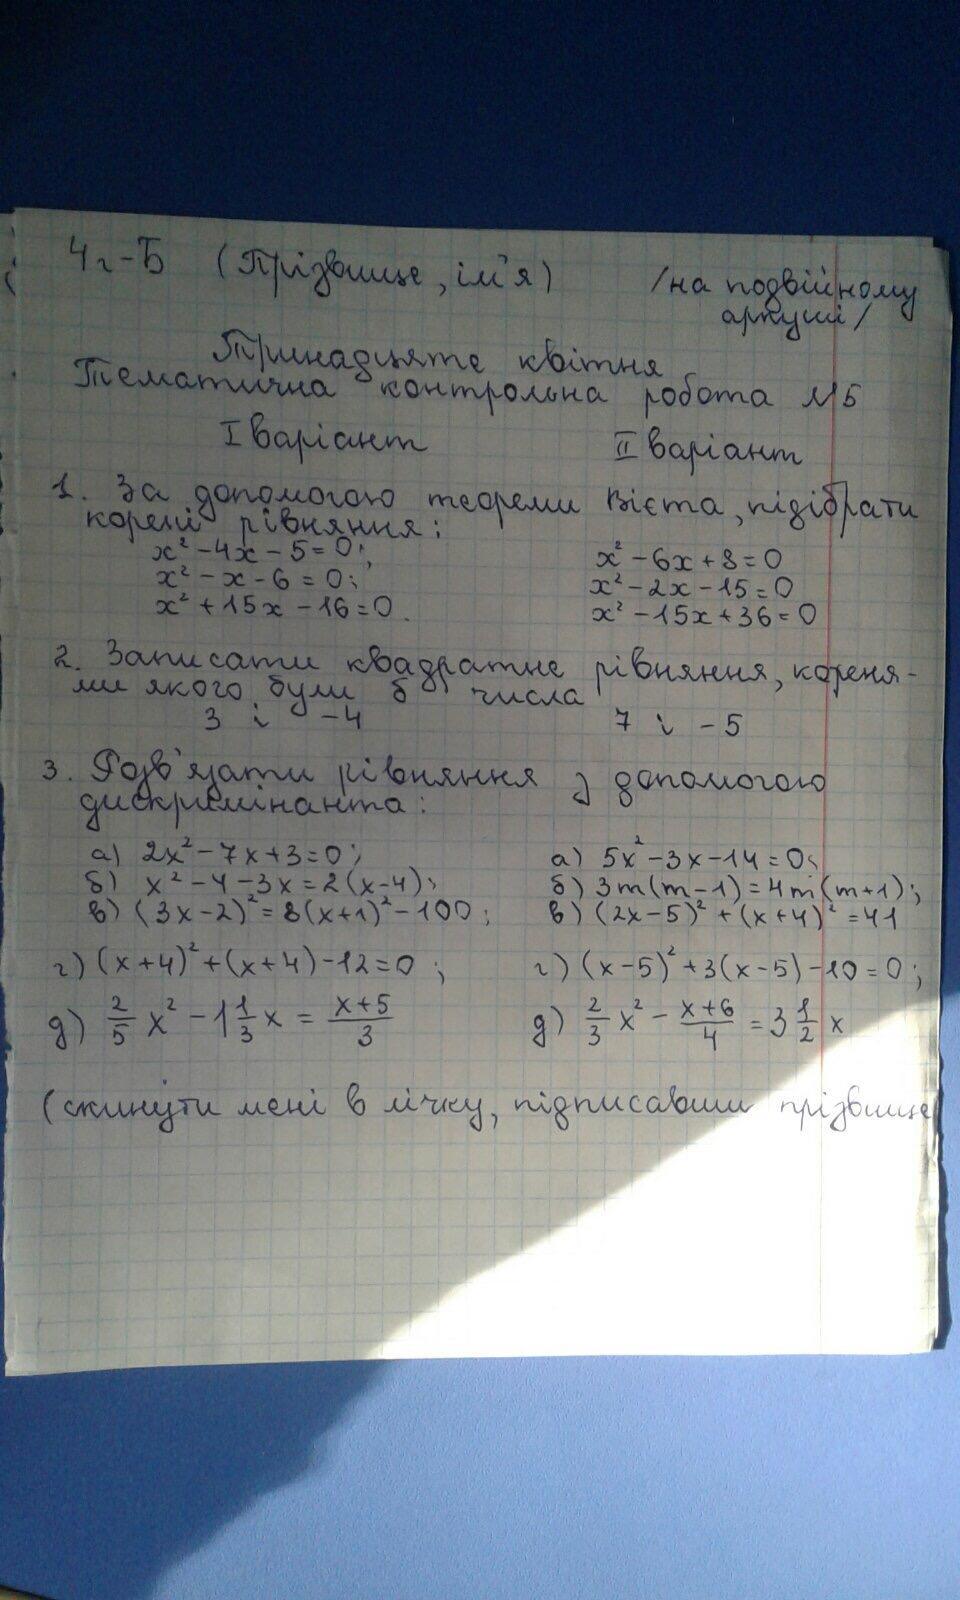 4г-Б (Прізвище, ім'я) /на подвійному
аркуші/
Тринадцяте квітня
Тематична контрольна робота №5
I варіант II варіант
1. За допомогою теореми Вієта, підібрати
корені рівняння:
x² - 4x - 5 = 0; x² - 6x + 8 = 0
x² - x - 6 = 0; x² - 2x - 15 = 0
x² + 15x - 16 = 0. x² - 15x + 36 = 0
2. Записати квадратне рівняння, кореня-
ми якого були б числа
3 і -4 7 і -5
3. Розв'язати рівняння з допомогою
дискримінанта:
а) 2x² - 7x + 3 = 0; а) 5x² - 3x - 14 = 0;
б) x² - 4 - 3x = 2(x - 4); б) 3m(m - 1) = 4m(m + 1);
в) (3x - 2)² = 8(x + 1)² - 100; в) (2x - 5)² + (x + 4)² = 41
г) (x + 4)² + (x + 4) - 12 = 0; г) (x - 5)² + 3(x - 5) - 10 = 0;
д) 2/5 x² - 1 1/3 x = (x + 5)/3 д) 2/3 x² - (x + 6)/4 = 3 1/2 x
(скинути мені в лічку, підписавши прізвище